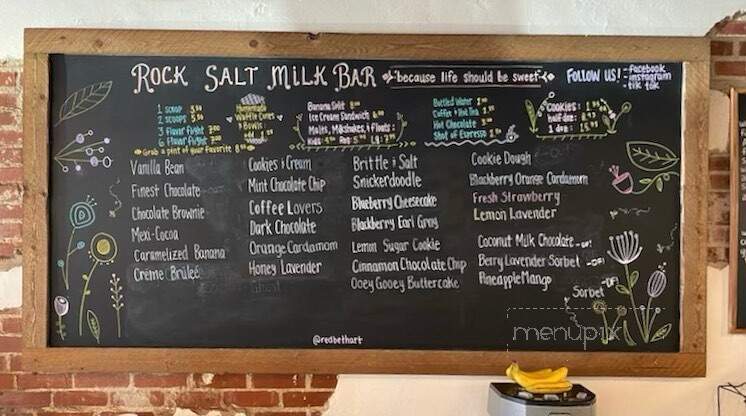 ROCK SALT MILK BAR
because life should be sweet
FOLLOW US! - facebook
- instagram
- tik tok
1 scoop
2 scoops
3 Flavor flight
6 Flavor flight
Grab a pint of your favorite
Homemade
Waffle Cones
& Bowls
Banana Split
Ice Cream Sandwich
Malts, Milkshakes, & Floats:
Bottled Water
Coffee + Hot Tea
Hot Chocolate
Shot of Espresso
Cookies:
half doz:
1 doz:
Vanilla Bean
Finest Chocolate
Chocolate Brownie
Mexi-Cocoa
Caramelized Banana
Crème Brûleé
Cookies & Cream
Mint Chocolate Chip
Coffee Lovers
Dark Chocolate
Orange Cardamom
Honey Lavender
Brittle & Salt
Snickerdoodle
Blueberry Cheesecake
Blackberry Earl Grey
Lemon Sugar Cookie
Cinnamon Chocolate Chip
Ooey Gooey Buttercake
Cookie Dough
Blackberry Orange Cardamom
Fresh Strawberry
Lemon Lavender
Coconut Milk Chocolate - DF!
Berry Lavender Sorbet - DF!
Pineapple Mango
Sorbet - DF!
@redbethart
menupix